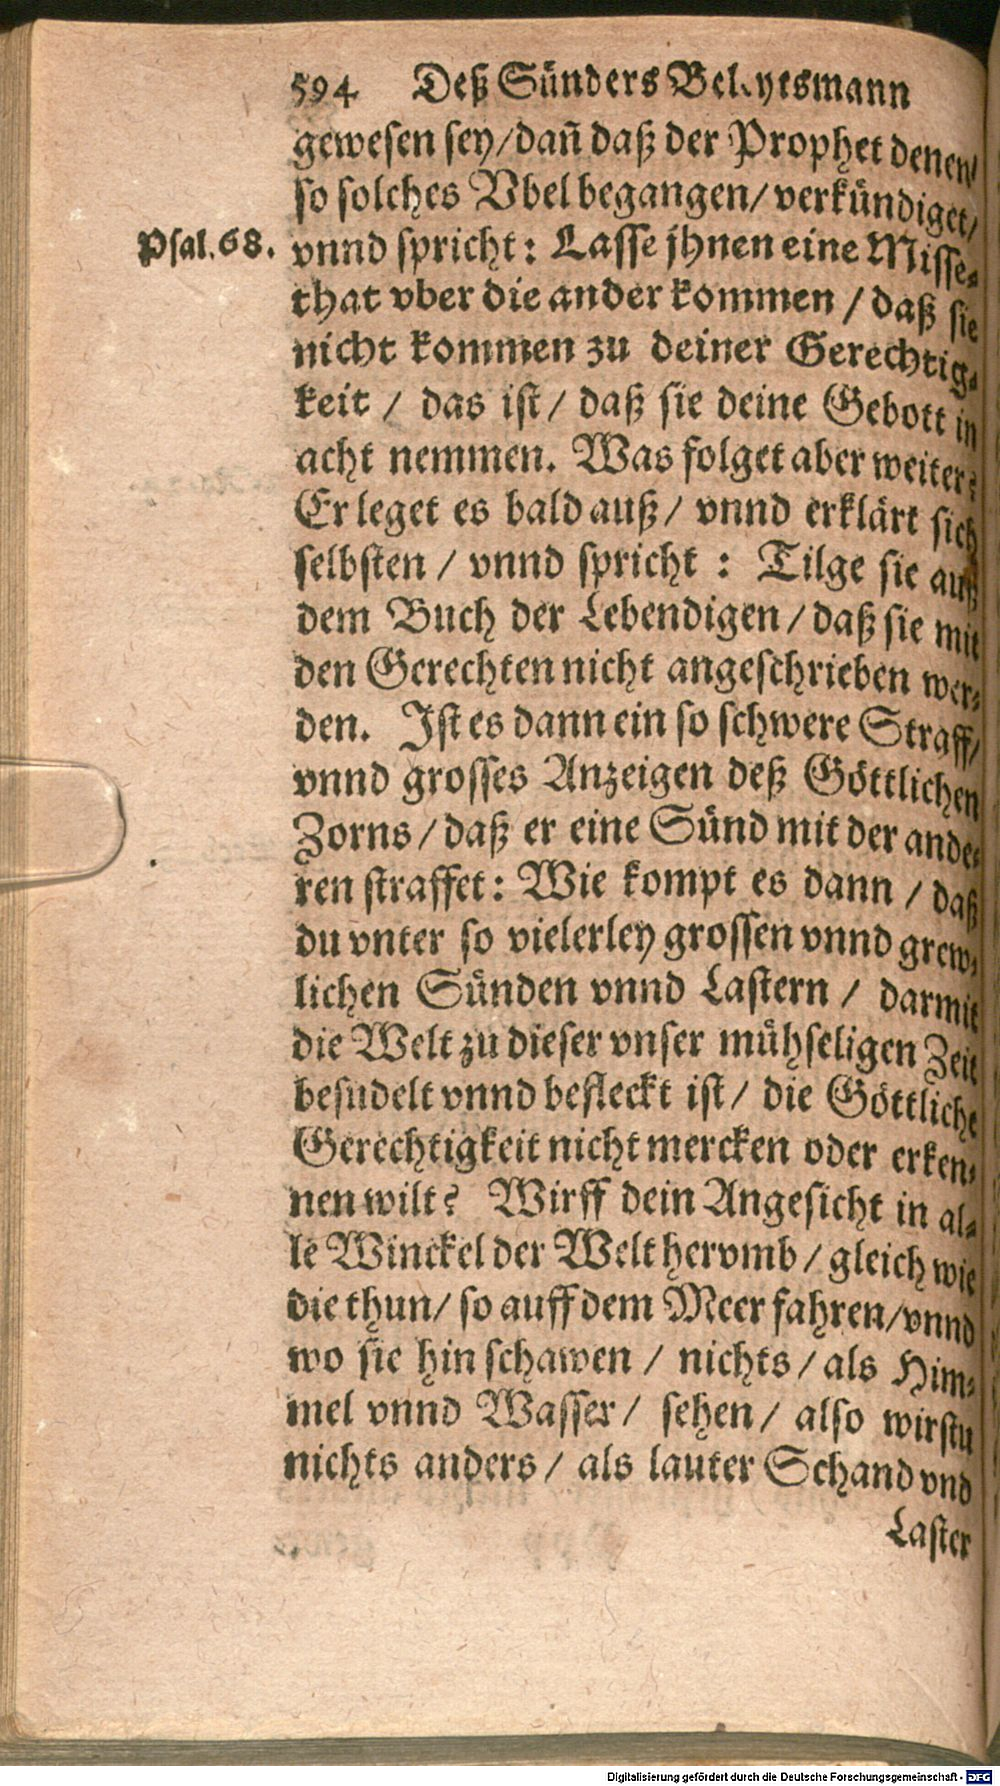 594 Deß Sünders Beleytsmann
gewesen sey/dañ daß der Prophet denen/
so solches Vbel begangen/ verkündiget/
Psal. 68. vnnd spricht: Lasse jhnen eine Misse-
that vber die ander kommen / daß sie
nicht kommen zu deiner Gerechtig-
keit / das ist/ daß sie deine Gebott in
acht nemmen. Was folget aber weiter?
Er leget es bald auß/ vnnd erklärt sich
selbsten / vnnd spricht : Tilge sie auß
dem Buch der Lebendigen / daß sie mit
den Gerechten nicht angeschrieben wer-
den. Ist es dann ein so schwere Straff/
vnnd grosses Anzeigen deß Göttlichen
Zorns/ daß er eine Sünd mit der ande-
ren straffet: Wie kompt es dann / daß
du vnter so vielerley grossen vnnd grew-
lichen Sünden vnnd Lastern / darmit
die Welt zu dieser vnser mühseligen Zeit
besudelt vnnd befleckt ist/ die Göttliche
Gerechtigkeit nicht mercken oder erken-
nen wilt? Wirff dein Angesicht in al-
le Winckel der Welt hervmb / gleich wie
die thun/ so auff dem Meer fahren/vnnd
wo sie hin schawen / nichts / als Him-
mel vnnd Wasser/ sehen/ also wirstu
nichts anders/ als lauter Schand vnd
Laster
Digitalisierung gefördert durch die Deutsche Forschungsgemeinschaft - DFG